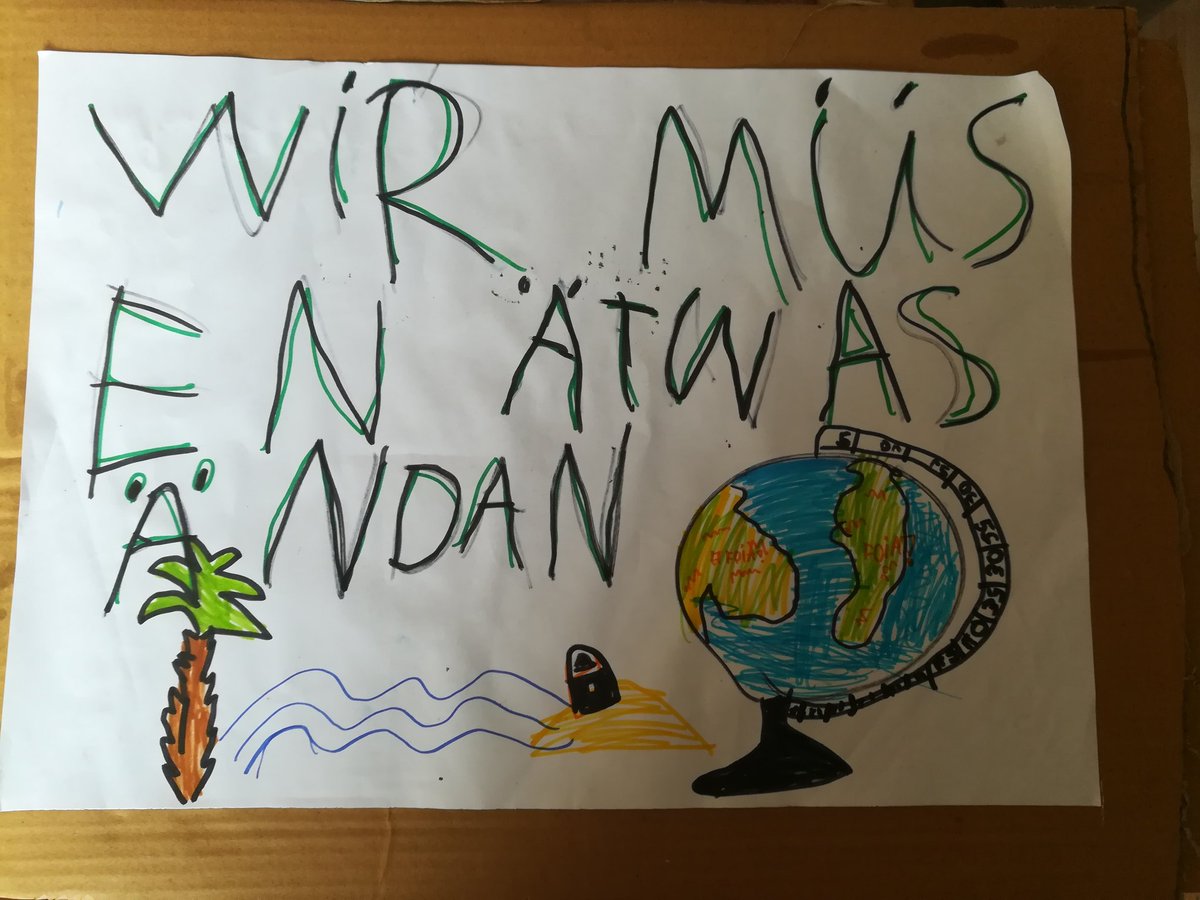 WIR MÜS
EN ÄTWAS
ÄNDAN